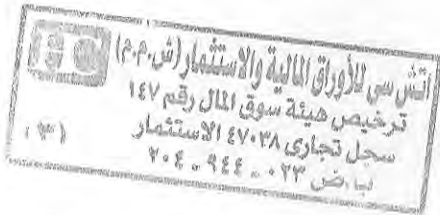 اتش سي للأوراق المالية والاستثمار (ش.م.م)
ترخيص هيئة سوق المال رقم ١٤٧
سجل تجارى ٤٧٠٣٨ الاستثمار
ب.ض ٠٢٣ - ٩٤٤ - ٢٠٤
(٣)